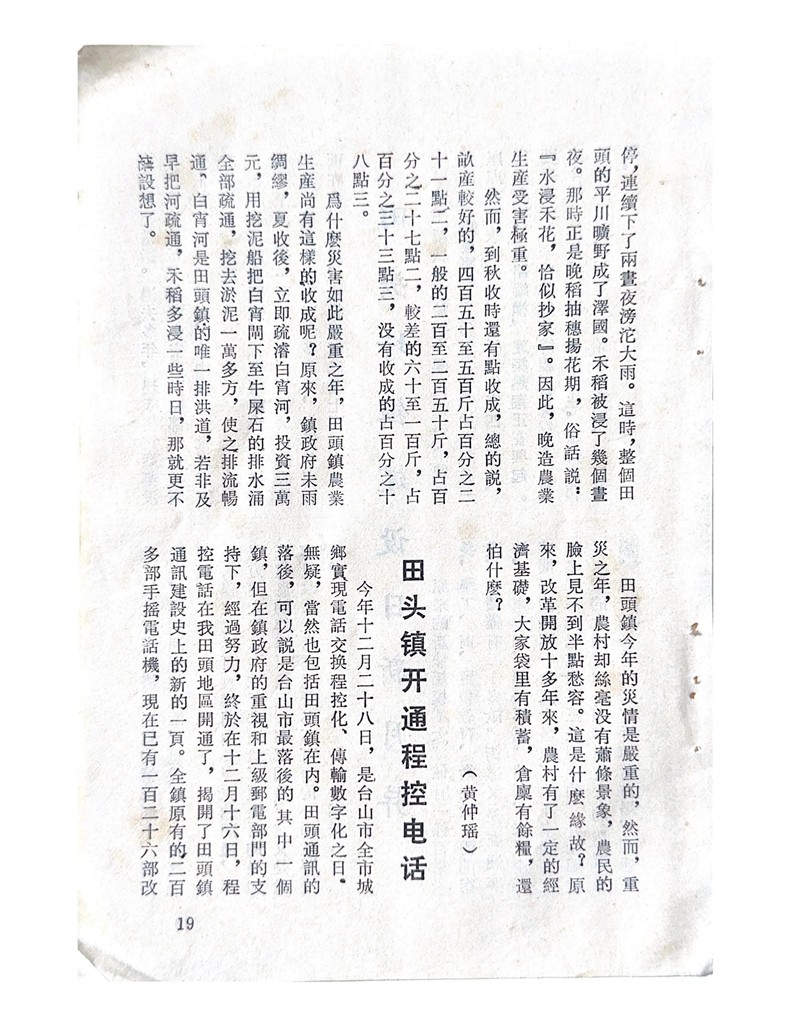 停，連續下了兩晝夜滂沱大雨。這時，整個田
頭的平川曠野成了澤國。禾稻被浸了幾個晝
夜。那時正是晚稻抽穗揚花期，俗話説：
『水浸禾花，恰似抄家』。因此，晚造農業
生產受害極重。
然而，到秋收時還有點收成，總的説，
畝產較好的，四百五十至五百斤占百分之二
十一點二，一般的二百至二百五十斤，占百
分之二十七點二，較差的六十至一百斤，占
百分之三十三點三，没有收成的占百分之十
八點三。
爲什麽災害如此嚴重之年，田頭鎮農業
生產尚有這樣的收成呢？原來，鎮政府未雨
綢繆，夏收後，立即疏濬白宵河，投資三萬
元，用挖泥船把白宵閘下至牛屎石的排水涌
全部疏通，挖去淤泥一萬多方，使之排流暢
通。白宵河是田頭鎮的唯一排洪道，若非及
早把河疏通，禾稻多浸一些時日，那就更不
設想了。
田頭鎮今年的災情是嚴重的，然而，重
災之年，農村却絲毫没有蕭條景象，農民的
臉上見不到半點愁容。這是什麽緣故？原
來，改革開放十多年來，農村有了一定的經
濟基礎，大家袋里有積蓄，倉廩有餘糧，還
怕什麽？
（黄仲瑶）
田头镇开通程控电话
今年十二月二十八日，是台山市全市城
鄉實現電話交换程控化、傳輸數字化之日。
無疑，當然也包括田頭鎮在内。田頭通訊的
落後，可以説是台山市最落後的其中一個
鎮，但在鎮政府的重視和上級郵電部門的支
持下，經過努力，終於在十二月十六日，程
控電話在我田頭地區開通了，揭開了田頭鎮
通訊建設史上的新的一頁。全鎮原有的二百
多部手摇電話機，現在已有一百二十六部改
19